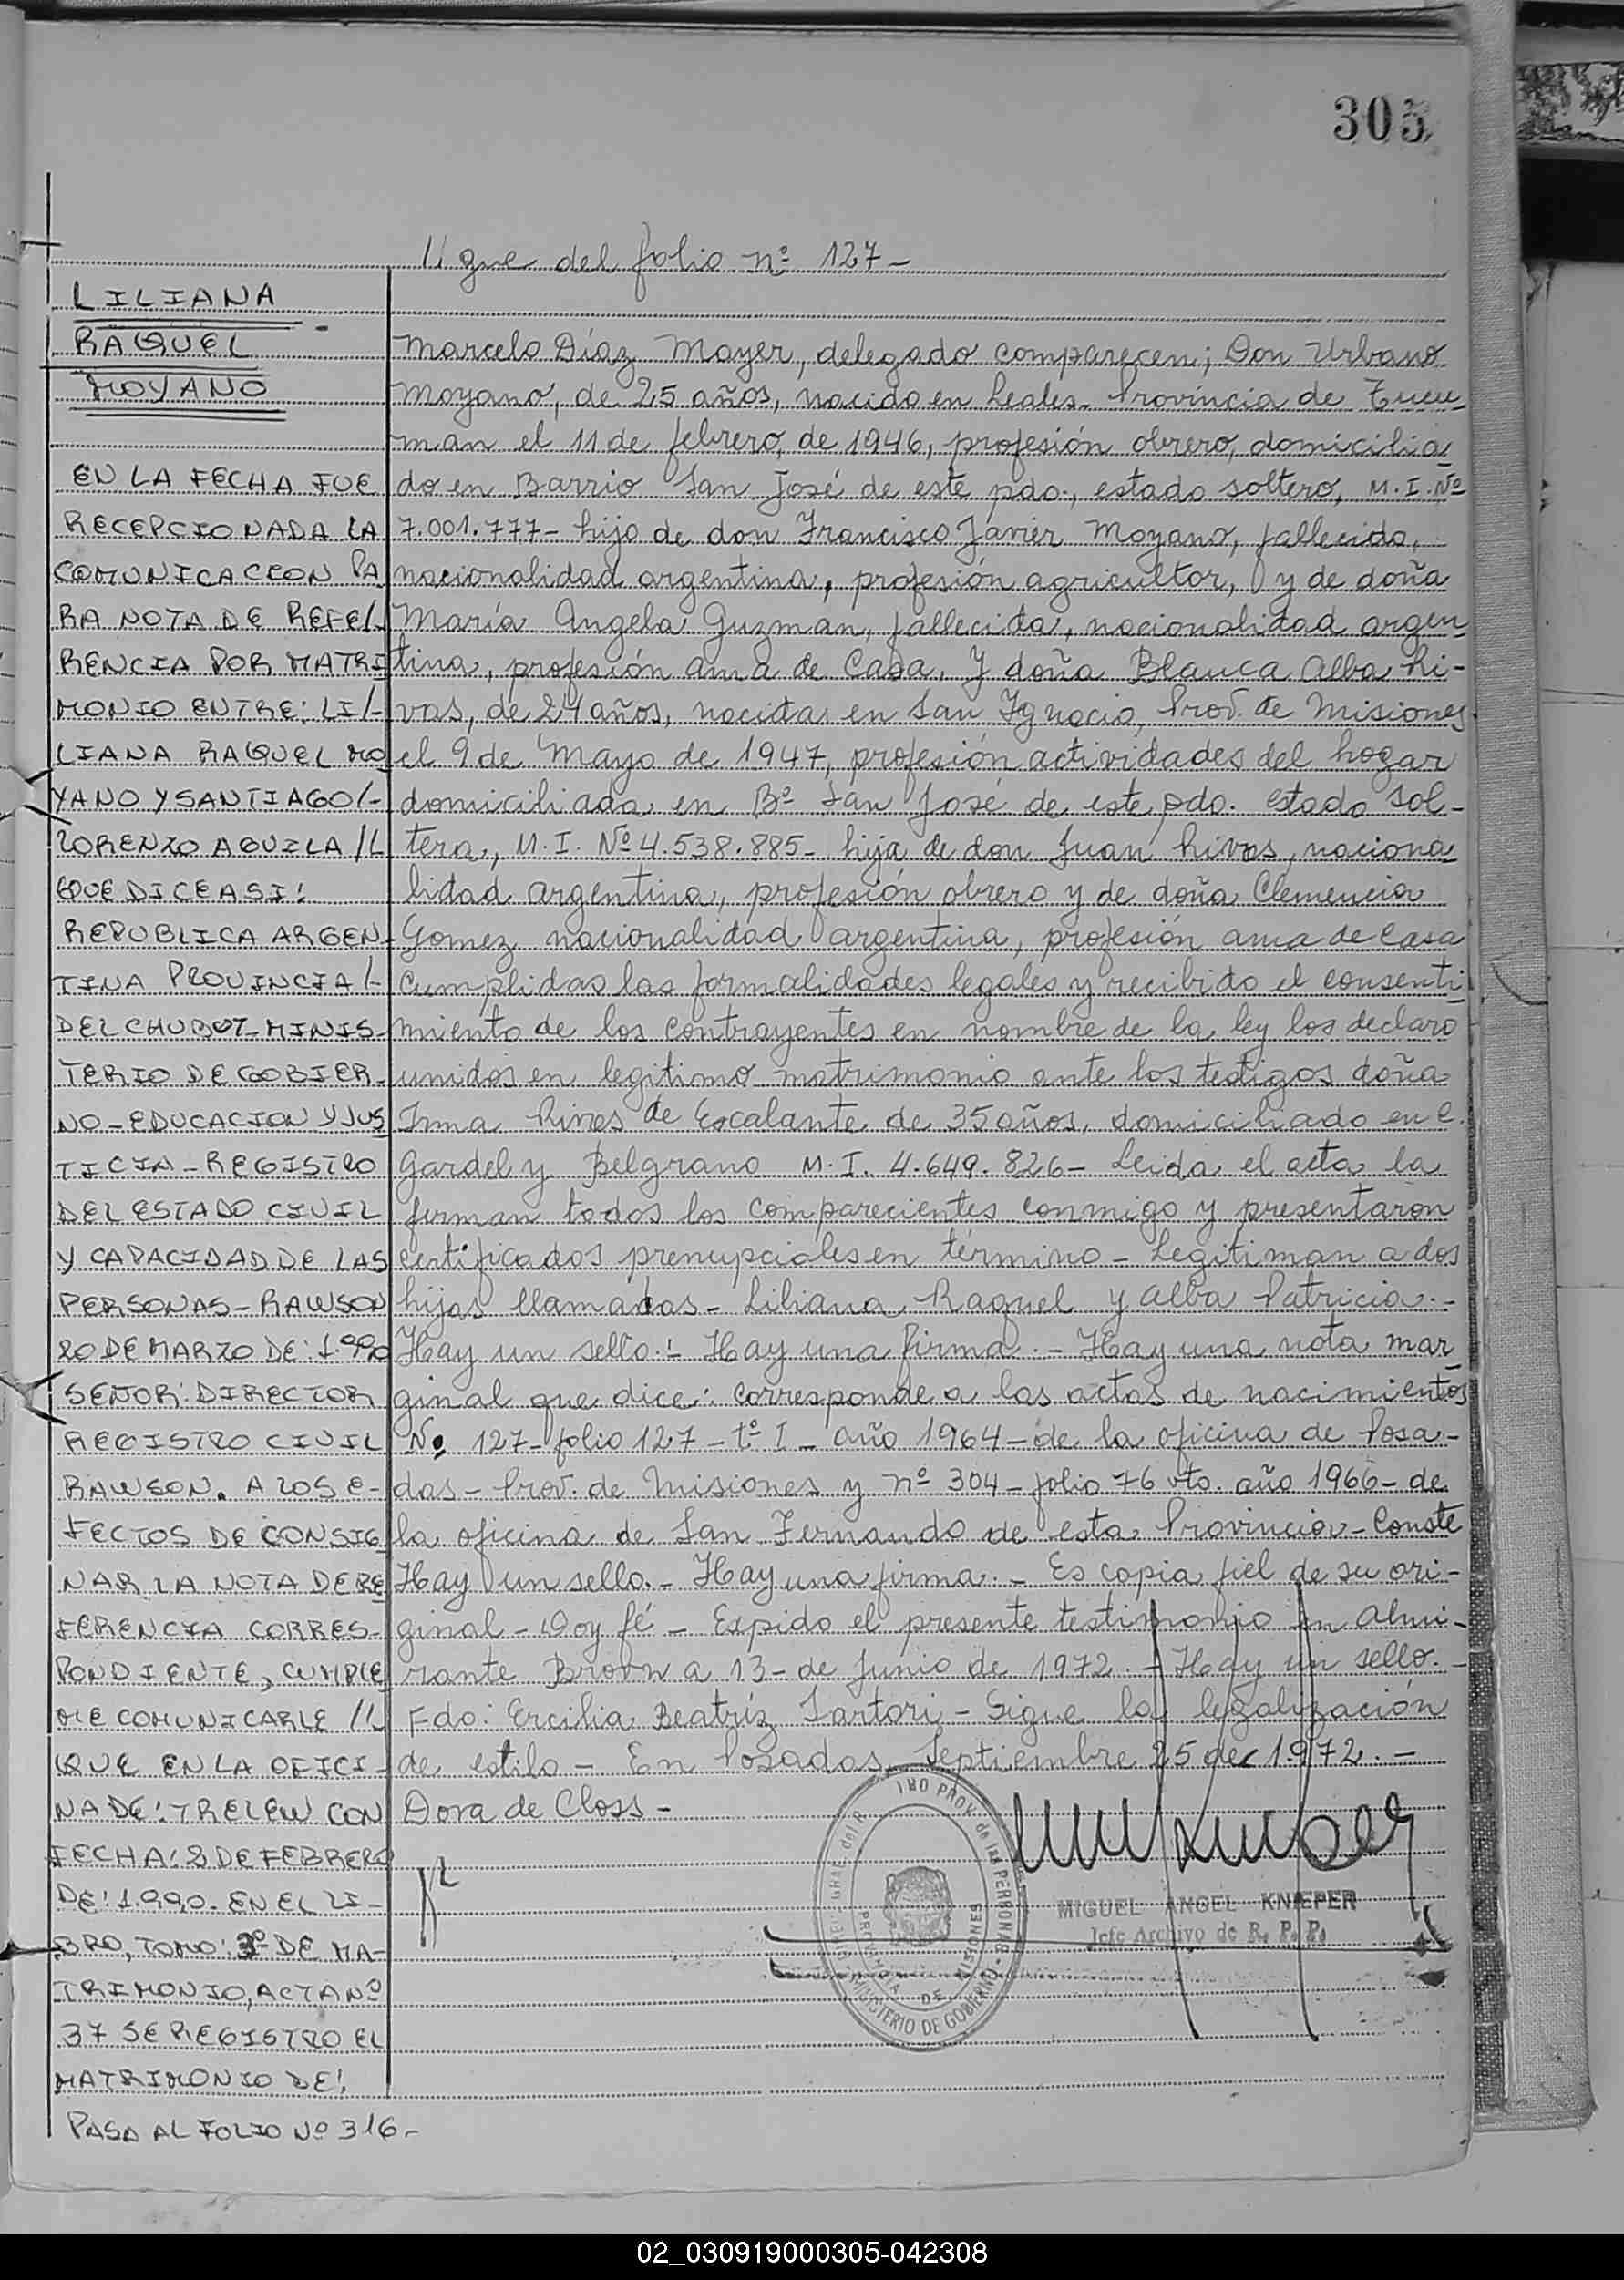 305
// gue del folio nº 127-
LILIANA
RAQUEL
MOYANO
EN LA FECHA FUE
RECEPCIONADA LA
COMUNICACION PA
RA NOTA DE REFE/-
RENCIA POR MATRI
MONIO ENTRE: LI/-
LIANA RAQUEL MO
YANO Y SANTIAGO/-
LORENZO AGUILA //
QUE DICE ASI:
REPUBLICA ARGEN-
TINA PROVINCIA/-
DEL CHUBUT-MINIS-
TERIO DE GOBIER-
NO-EDUCACION Y JUS
TICIA-REGISTRO
DEL ESTADO CIVIL
Y CAPACIDAD DE LAS
PERSONAS-RAWSON
20 DE MARZO DE: 1.990
SEÑOR: DIRECTOR
REGISTRO CIVIL
RAWSON. A LOS E-
FECTOS DE CONSIG
NAR LA NOTA DE RE
FERENCIA CORRES-
PONDIENTE, CUMPLE
ME COMUNICARLE //
QUE EN LA OFICI-
NA DE: TRELEW CON
FECHA: 8 DE FEBRERO
DE: 1.990. EN EL LI-
BRO, TOMO: 3º DE MA-
TRIMONIO, ACTA Nº
37 SE REGISTRO EL
MATRIMONIO DE:
PASA AL FOLIO Nº 316-
Marcelo Díaz Mayer, delegado comparecen; Don Urbano
Moyano, de 25 años, nacido en Leales- Provincia de Tucu-
man el 11 de febrero, de 1946, profesión obrero, domicilia
do en Barrio San José de este pdo., estado soltero, M.I. Nº
7.001.777- hijo de don Francisco Javier Moyano, fallecido,
nacionalidad argentina, profesión agricultor, y de doña
María Angela Guzman, fallecida, nacionalidad argen
tina, profesión ama de Casa, Y doña Blanca Alba Ri-
vas, de 24 años, nacida en San Ignacio, Prov. de Misiones
el 9 de Mayo de 1947, profesión actividades del hogar
domiciliada en Bº San José de este pdo. estado sol-
tera, M.I. Nº 4.538.885- hija de don Juan Rivas, naciona
lidad argentina, profesión obrero y de doña Clemencia
Gomez nacionalidad argentina, profesión ama de Casa
Cumplidas las formalidades legales y recibido el consenti
miento de los contrayentes en nombre de la ley los declaro
unidos en legitimo matrimonio ante los testigos doña
Irma Rivas de Escalante de 35 años, domiciliado en C.
Gardel y Belgrano M.I. 4.649.826- Leida el acta la
firman todos los comparecientes conmigo y presentaron
certificados prenupciales en término- Legitiman a dos
hijas llamadas- Liliana Raquel y Alba Patricia.-
Hay un sello.- Hay una firma.- Hay una nota mar
ginal que dice: corresponde a las actas de nacimientos
Nº 127-folio 127-tº I- año 1964-de la oficina de Posa-
das- Prov. de Misiones y nº 304-folio 76 vto. año 1966- de
la oficina de San Fernando de esta Provincia-Conste
Hay un sello.- Hay una firma.- Es copia fiel de su ori-
ginal-Doy fé- Expido el presente testimonio en Almi-
rante Brown a 13-de Junio de 1972.- Hay un sello.-
Fdo: Ercilia Beatríz Sartori- Sigue la legalización
de estilo- En Posadas, Septiembre 25 de 1972.-
Dora de Closs-
PROVINCIA DE MISIONES
MINISTERIO DE GOBIERNO
MIGUEL ANGEL KNIEPER
Jefe Archivo de R. P. P.
02_030919000305-042308